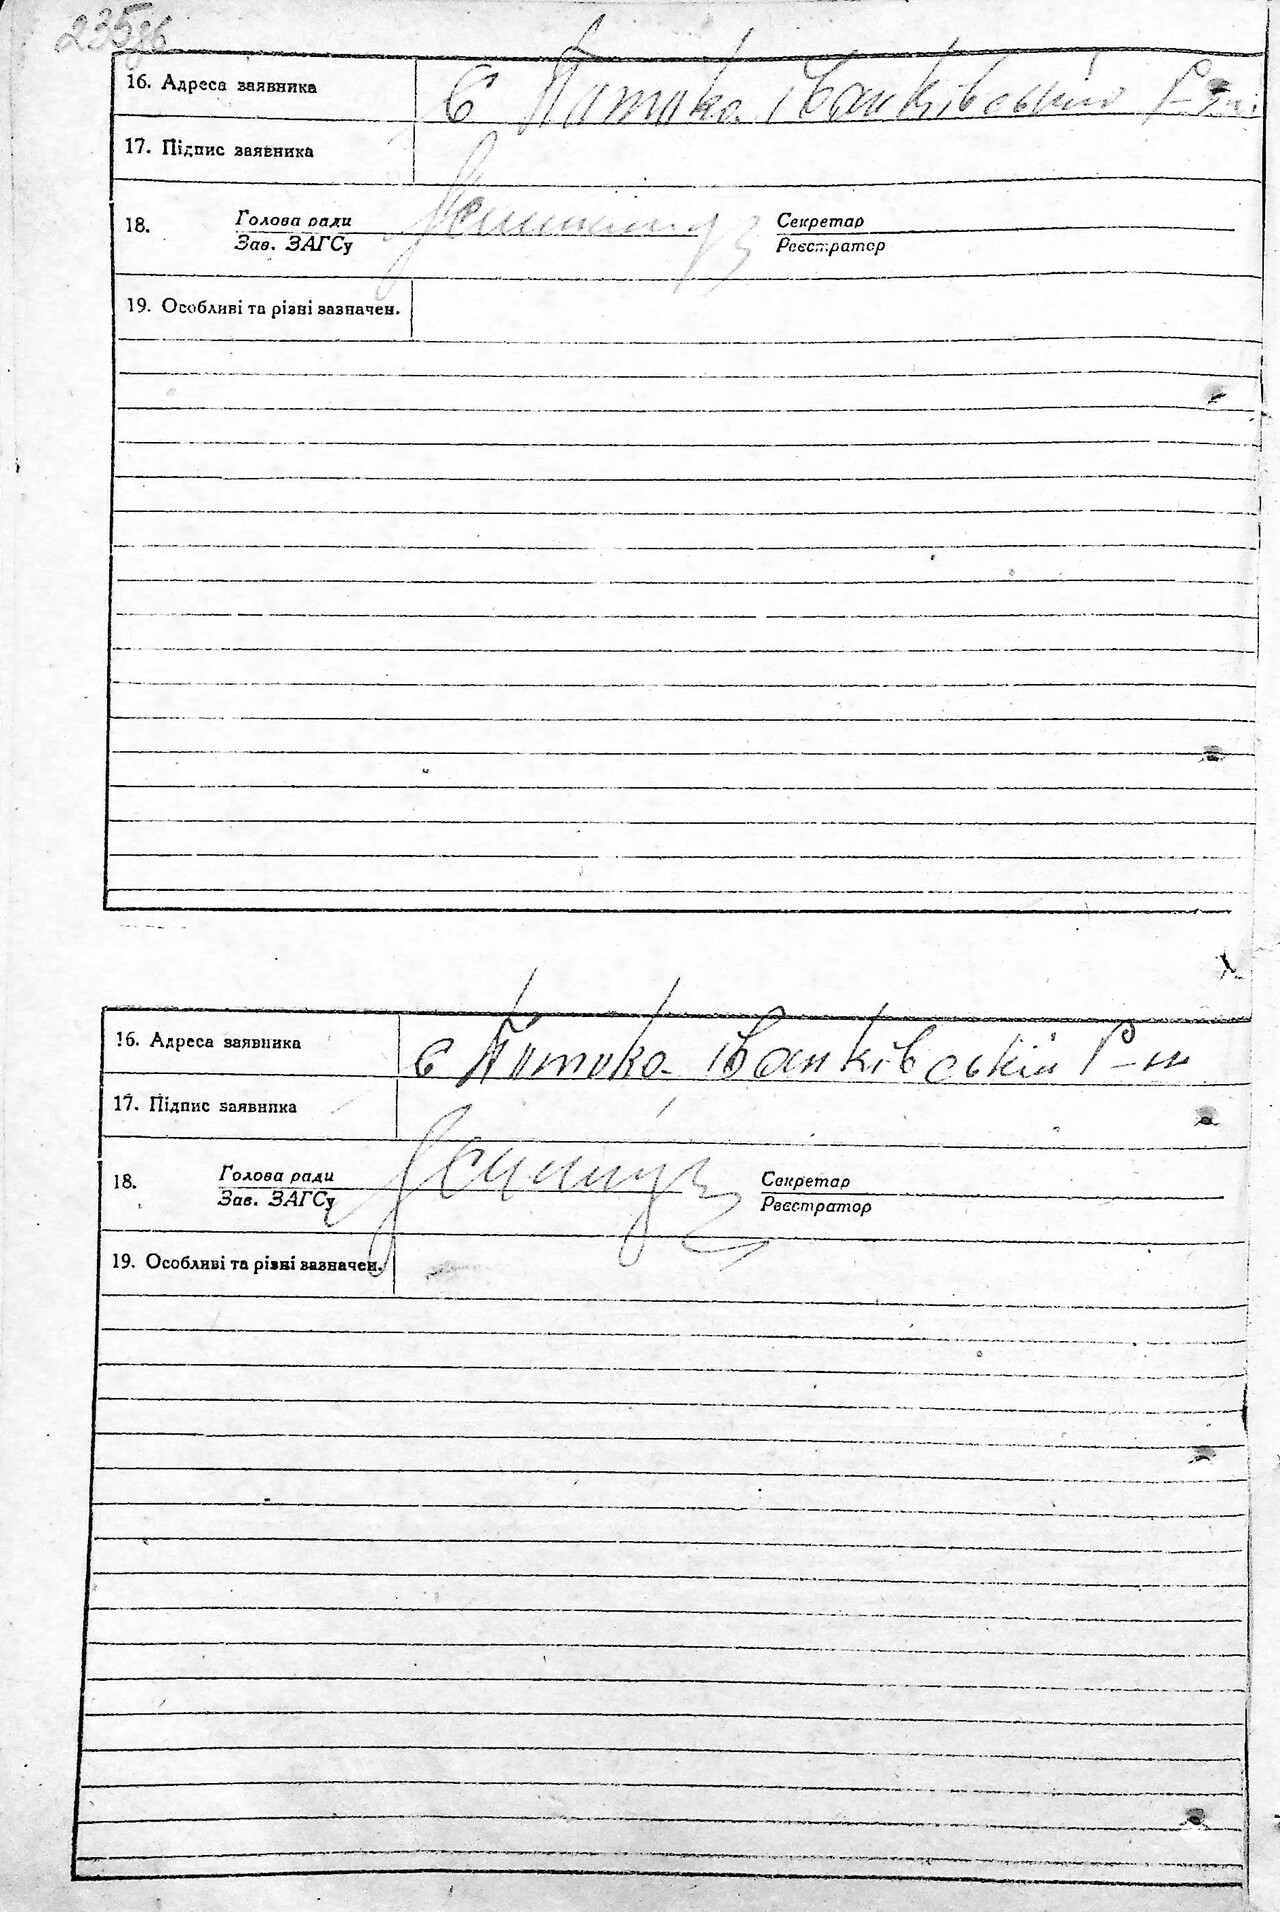 235зв
16. Адреса заявника с Потока Іванківський Р-н
17. Підпис заявника
18. Голова ради Секретар
Зав. ЗАГСу Реєстратор
19. Особливі та різні зазначен.
16. Адреса заявника с Потока Іванківській Р-н
17. Підпис заявника
18. Голова ради Секретар
Зав. ЗАГСу Реєстратор
19. Особливі та різні зазначен.